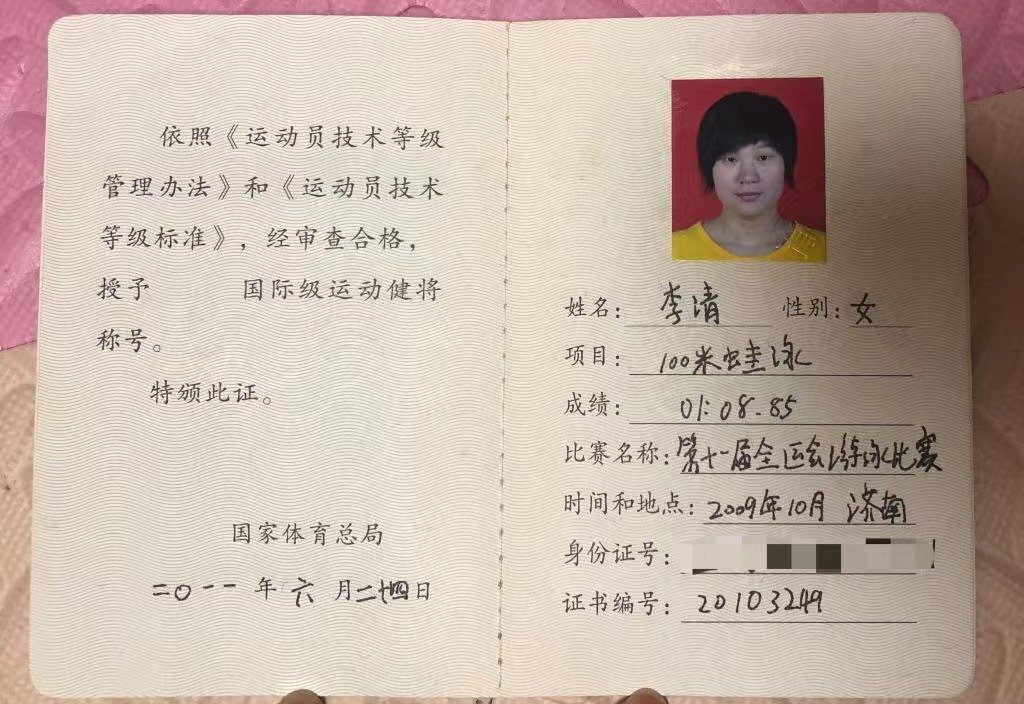 依照《运动员技术等级
管理办法》和《运动员技术
等级标准》，经审查合格，
授予 国际级运动健将
称号。
特颁此证。
国家体育总局
二〇一一年六月二十四日
姓名：李清 性别：女
项目：100米蛙泳
成绩：01:08.85
比赛名称：第十一届全运会游泳比赛
时间和地点：2009年10月 济南
身份证号：
证书编号：20103249